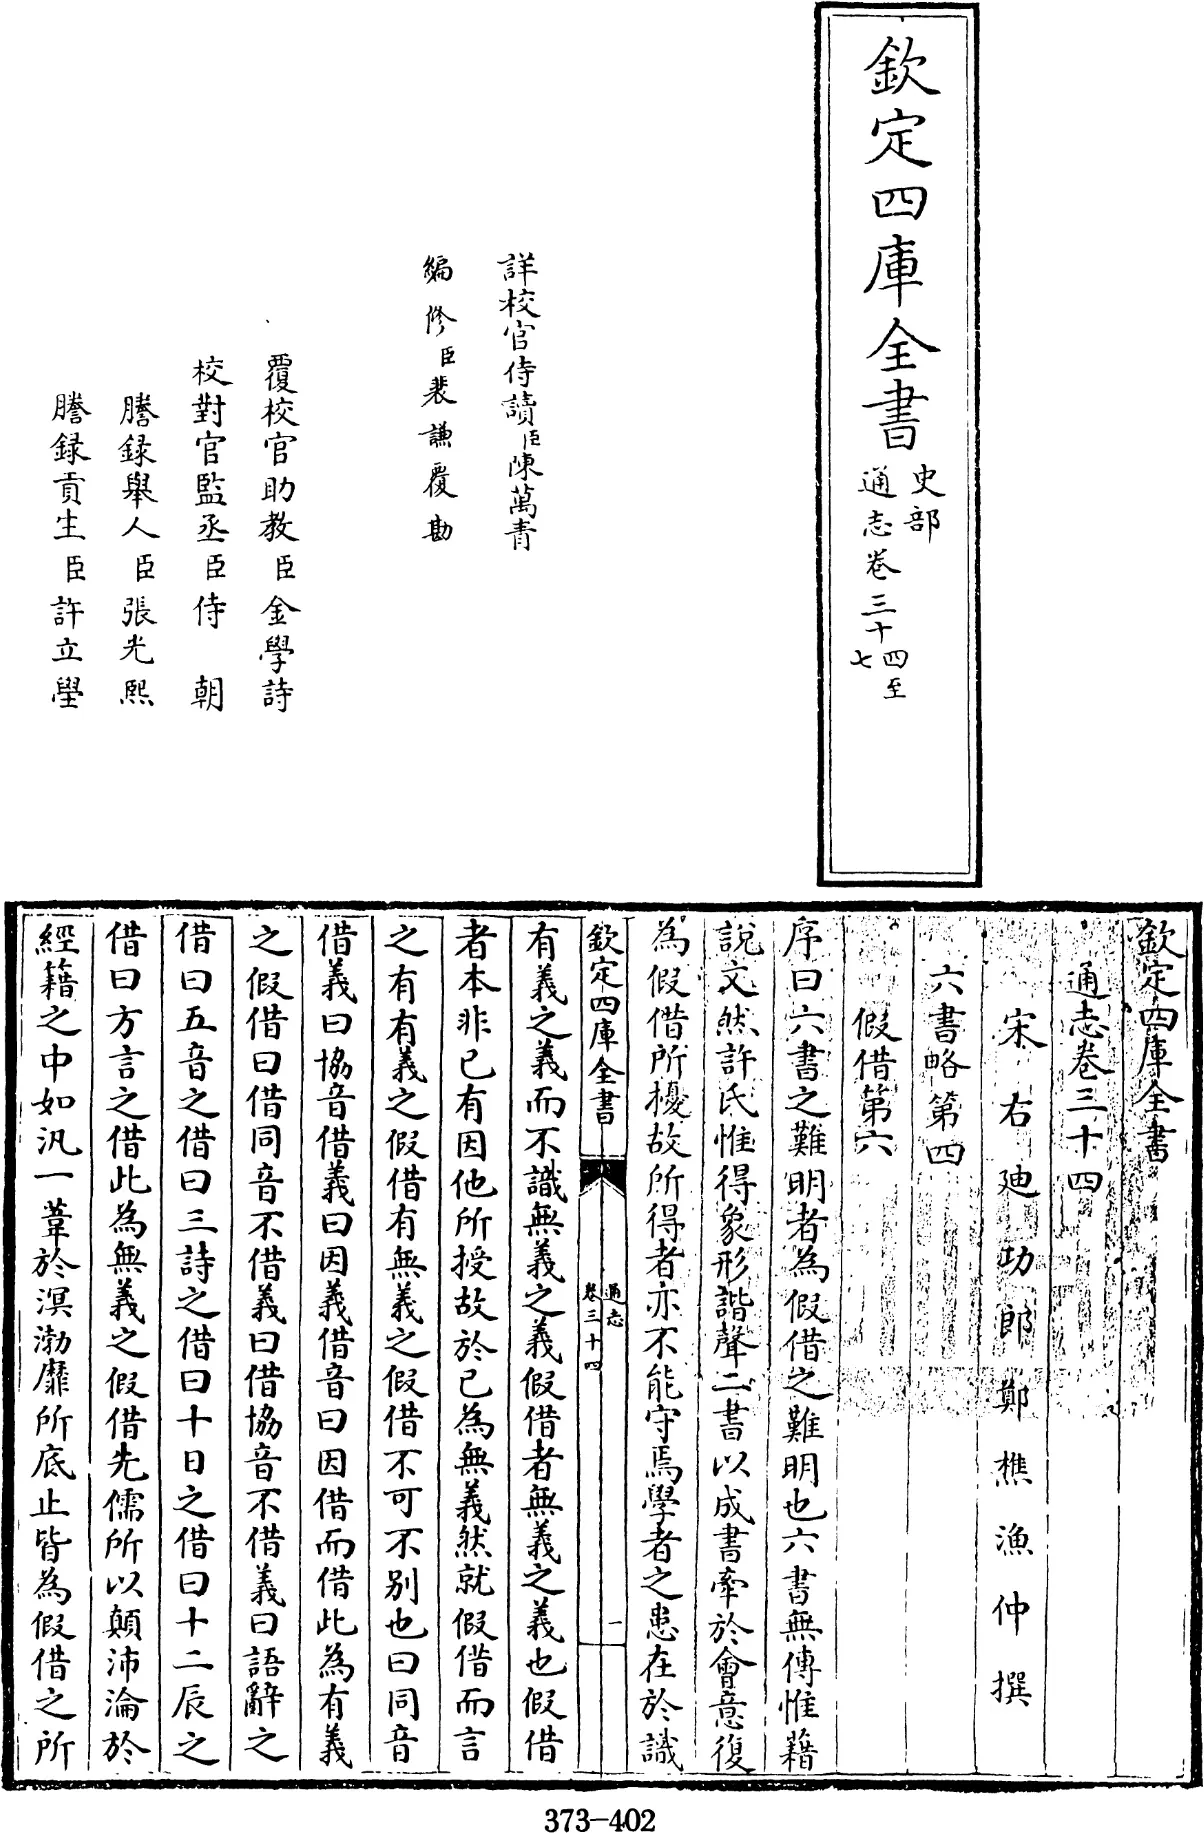 欽定四庫全書
史部
通志卷三十四至
七
詳校官侍讀臣陳萬青
編修臣裴謙覆勘
覆校官助教臣金學詩
校對官監丞臣侍朝
謄録舉人臣張光熙
謄録貢生臣許立壆
欽定四庫全書
通志卷三十四
宋右迪功郎鄭樵漁仲撰
六書略第四
假借第六
序曰六書之難明者為假借之難明也六書無傳惟藉
說文然許氏惟得象形諧聲二書以成書牽於會意復
為假借所擾故所得者亦不能守焉學者之患在於識
欽定四庫全書
通志
卷三十四
一
有義之義而不識無義之義假借者無義之義也假借
者本非已有因他所授故於已為無義然就假借而言
之有有義之假借有無義之假借不可不别也曰同音
借義曰協音借義曰因義借音曰因借而借此為有義
之假借曰借同音不借義曰借協音不借義曰語辭之
借曰五音之借曰三詩之借曰十日之借曰十二辰之
借曰方言之借此為無義之假借先儒所以顛沛淪於
經籍之中如汎一葦於溟渤靡所底止皆為假借之所
373-402